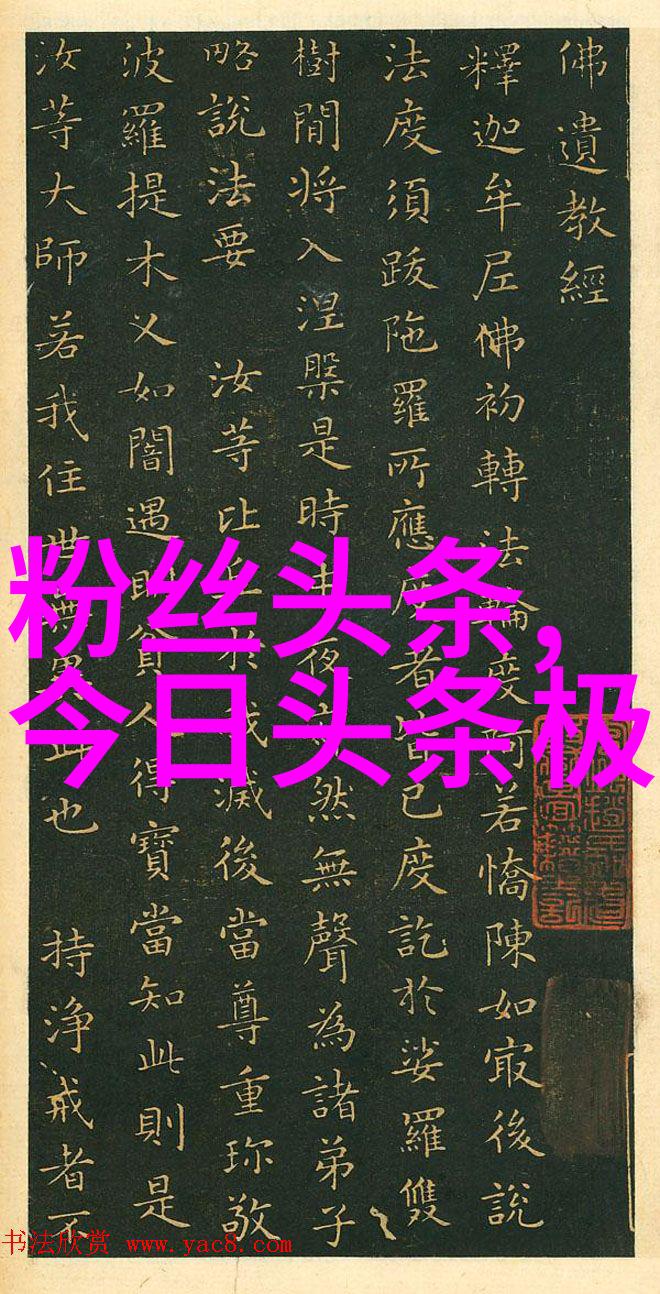 佛遺教經
釋迦牟尼佛初轉法輪度阿若憍陳如㝡後說
法度須跋陁羅所應度者皆已度訖於娑羅雙
樹間將入涅槃是時中夜寂然無聲為諸弟子
略說法要 汝等比丘於我滅後當尊重珎敬
波羅提木叉如闇遇明貧人得寶當知此則是
汝等大師若我住世無異此也 持淨戒者不
粉丝头条,
今日头条极
书法欣赏 www.yac8.com